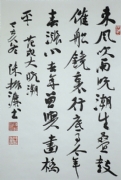 東風吹雨晚潮生疊鼓
催船鏡裏行底事今年
春漲小去年曾與畫橋
平 范成大晚潮
陳振濂書